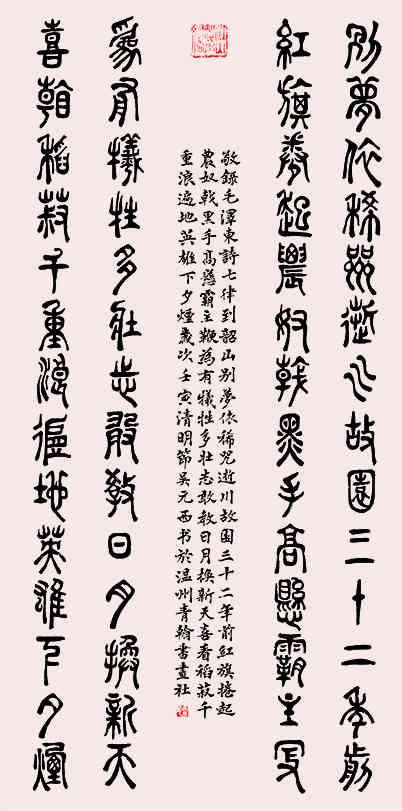 别夢依稀咒逝川故園三十二年前
紅旗卷起農奴戟黑手高懸霸主鞭
敬錄毛澤東詩七律到韶山别夢依稀咒逝川故園三十二年前紅旗捲起
農奴戟黑手高懸霸主鞭為有犧牲多壯志敢教日月換新天喜看稻菽千
重浪遍地英雄下夕煙歲次壬寅清明節吴元西书於温州青翰書畫社
爲有犧牲多壯志敢教日月換新天
喜看稻菽千重浪遍地英雄下夕煙